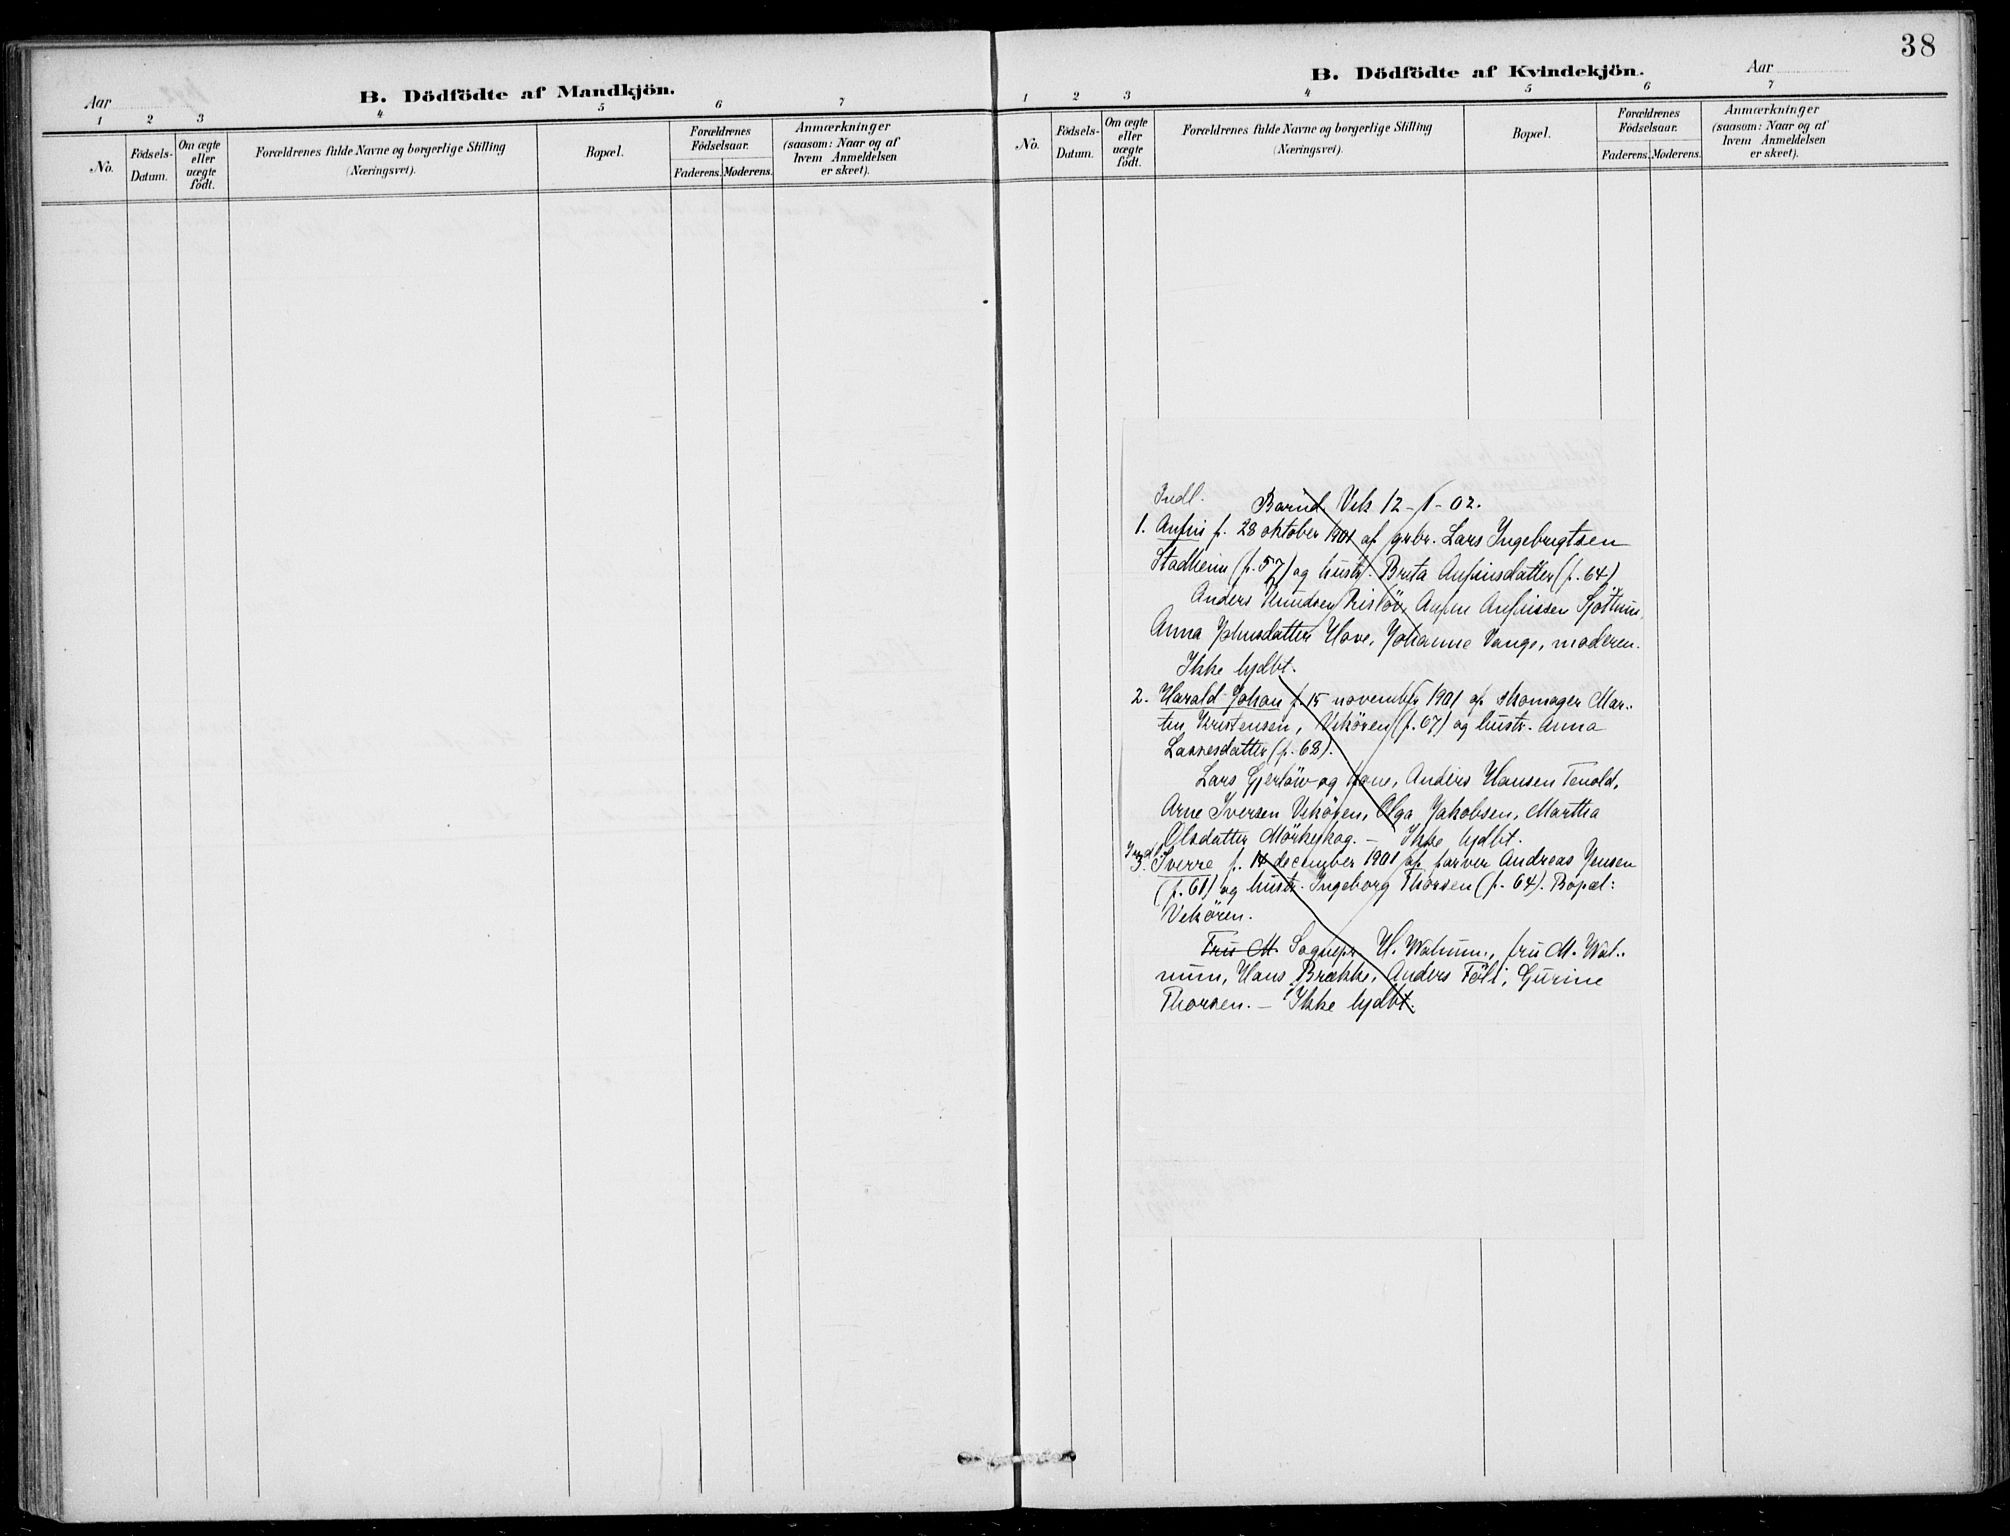 Aar
B. Dödfödte af Mandkjön.
1 2 3 4 5 6 7
No.
Födsels-
Datum.
Om ægte
eller
uægte
födt.
Forældrenes fulde Navne og borgerlige Stilling
(Næringsvei).
Bopæl.
Forældrenes
Födselsaar.
Faderens. Moderens.
Anmærkninger
(saasom: Naar og af
hvem Anmeldelsen
er skeet).
38
B. Dödfödte af Kvindekjön.
Aar
1 2 3 4 5 6 7
No.
Födsels-
Datum.
Om ægte
eller
uægte
födt.
Forældrenes fulde Navne og borgerlige Stilling
(Næringsvei).
Bopæl.
Forældrenes
Födselsaar.
Faderens. Moderens.
Anmærkninger
(saasom: Naar og af
hvem Anmeldelsen
er skeet).
Indl.
Barnd. Vik 12-1-02.
1. Anfin f. 28 oktober 1901 af grbr. Lars Ingebrigtsen
Stadheim (f. 57) og hustr. Brita Anfinsdatter (f. 64)
Anders Knudsen Anfin Anfinsen
Anna Johnsdatter Hove, Johanne Vange, moderen.
Ikke hjdbt.
2. Harald Johan f. 15 november 1901 af skomager Mar-
tin Kristensen, Vikören (f. 67) og hustr. Anna
Lassesdatter (f. 68).
Lars Gjerlöw og kone, Anders Hansen Tenold,
Arne Iversen Vikören, Olga Jakobsen, Martha
Olsdatter Mörkeskog. – Ikke hjdbt.
Indl.
3. Sverre f. 14 december 1901 af farver Andreas Jensen
(f. 61) og hustr. Ingeborg Thorsen (f. 64). Bopæl:
Vikören.
Fru M. Sognepr H. Walnum, fru M. Wal-
num, Hans Brække, Anders Föli, Gurine
Thorsen. – Ikke hjdbt.